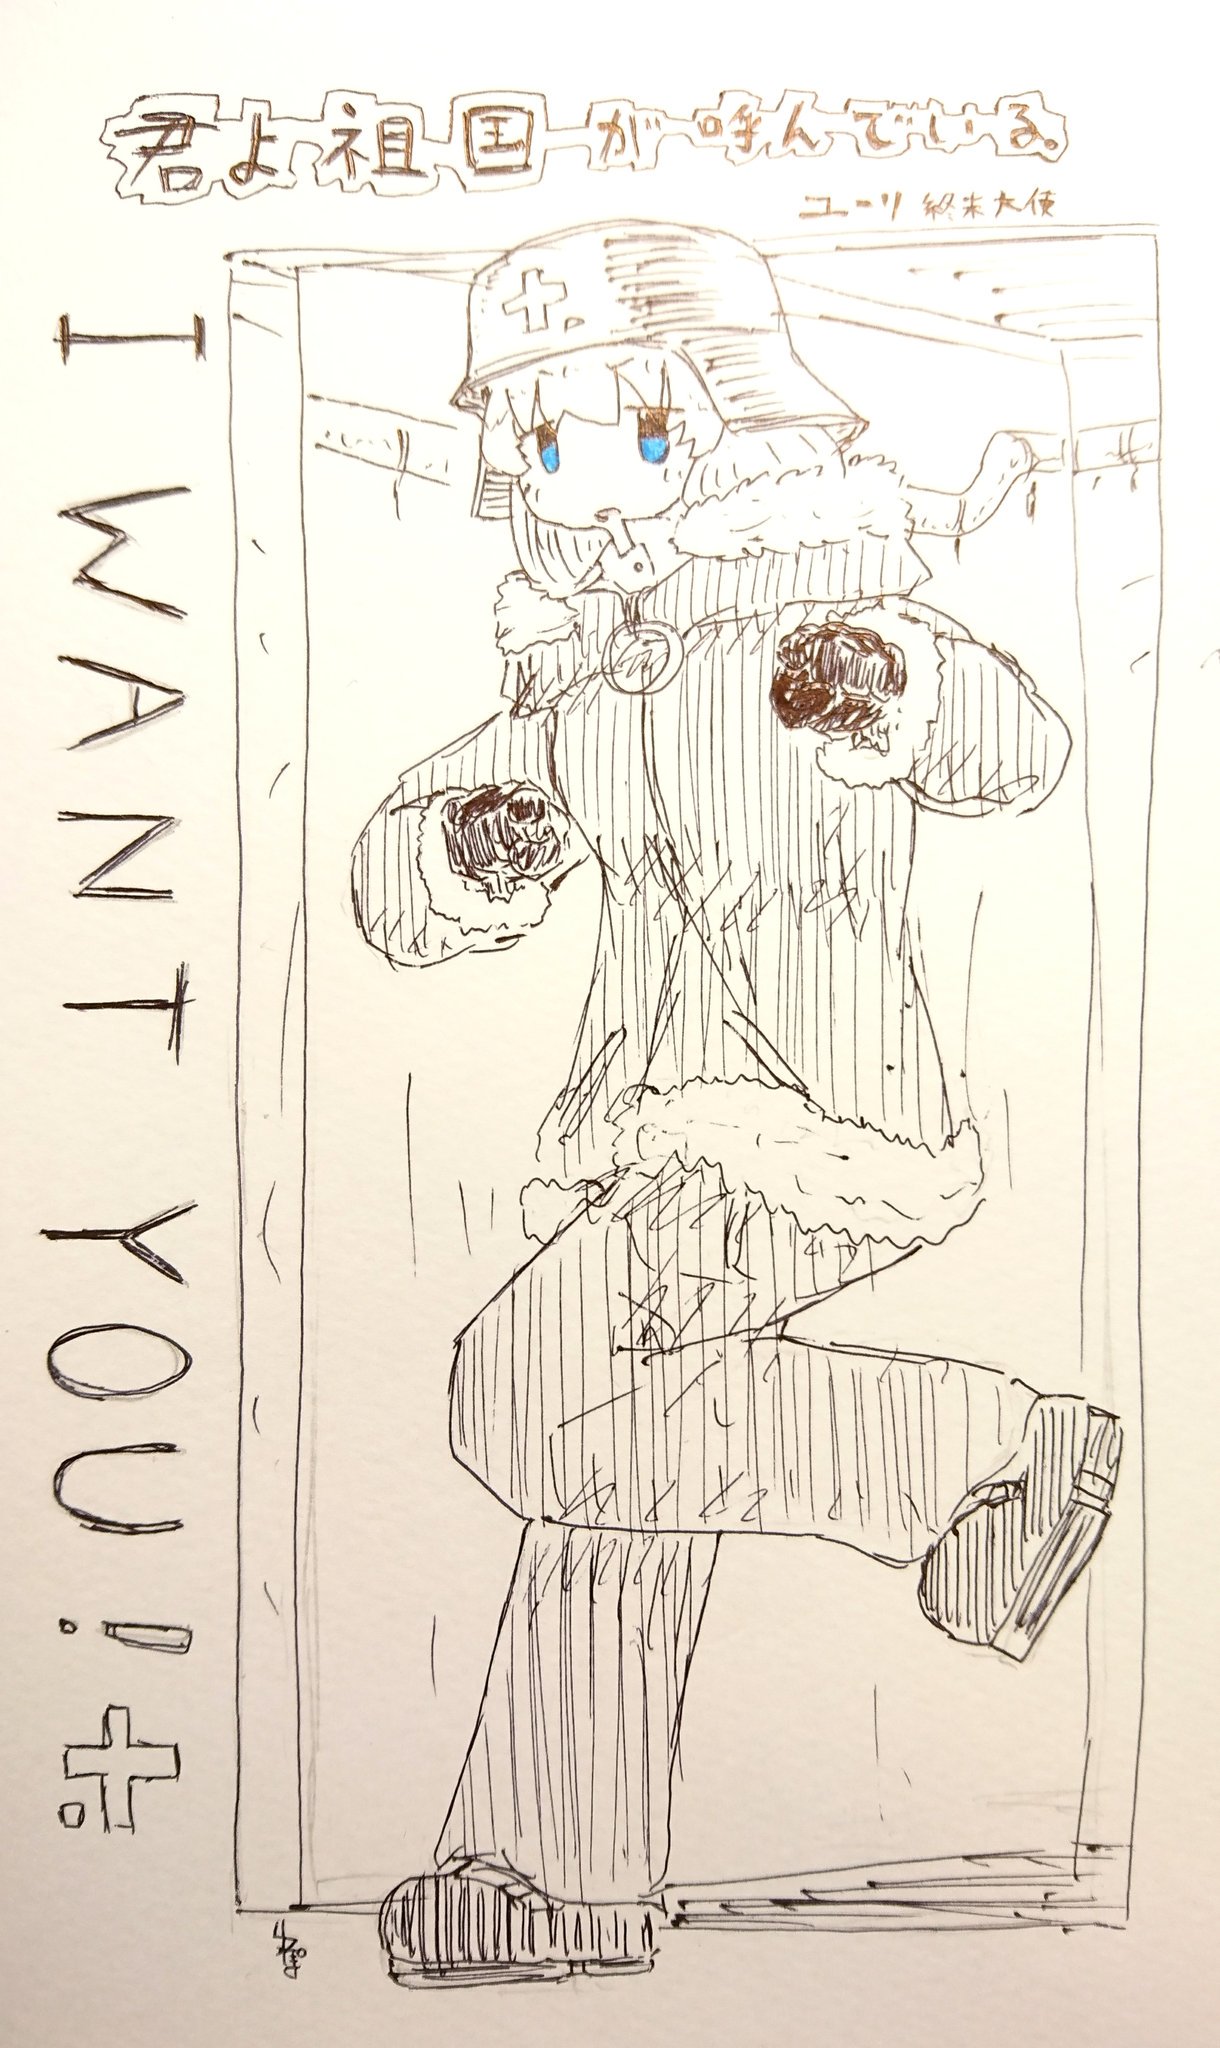 君よ祖国が呼んでいる。
ユーリ 終末大使
I WANT YOU!